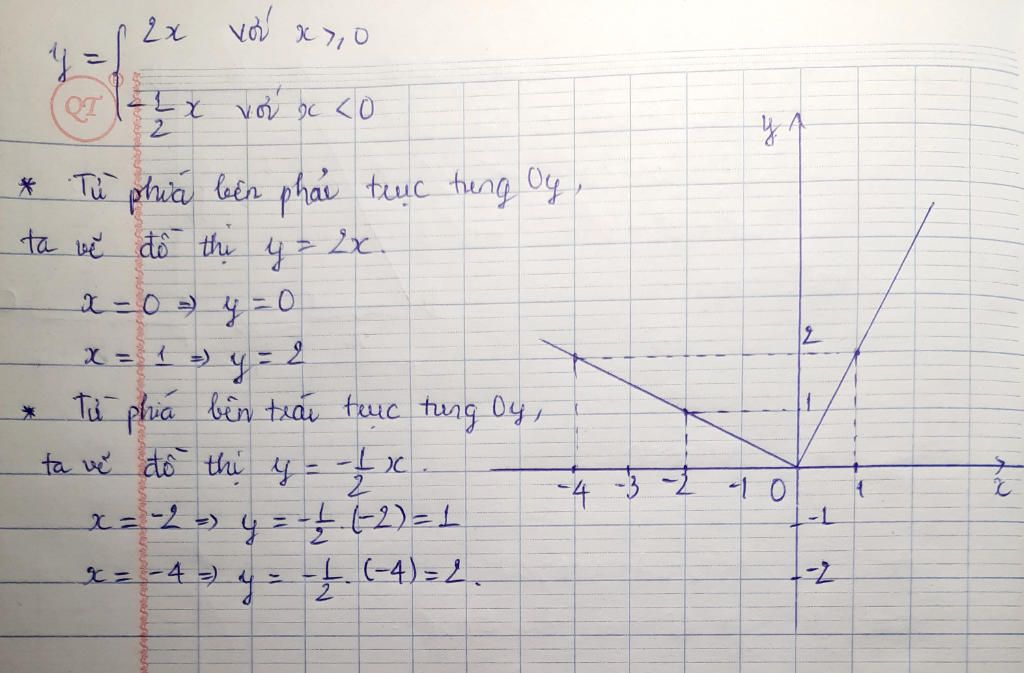 y = { 2x với x ≥ 0
QT
-1/2 x với x < 0
* Từ phía bên phải trục tung Oy,
ta vẽ đồ thị y = 2x.
x = 0 ⇒ y = 0
x = 1 ⇒ y = 2
* Từ phía bên trái trục tung Oy,
ta vẽ đồ thị y = -1/2 x.
x = -2 ⇒ y = -1/2 . (-2) = 1
x = -4 ⇒ y = -1/2 . (-4) = 2.
y
2
1
-4 -3 -2 -1 0 1 x
-1
-2